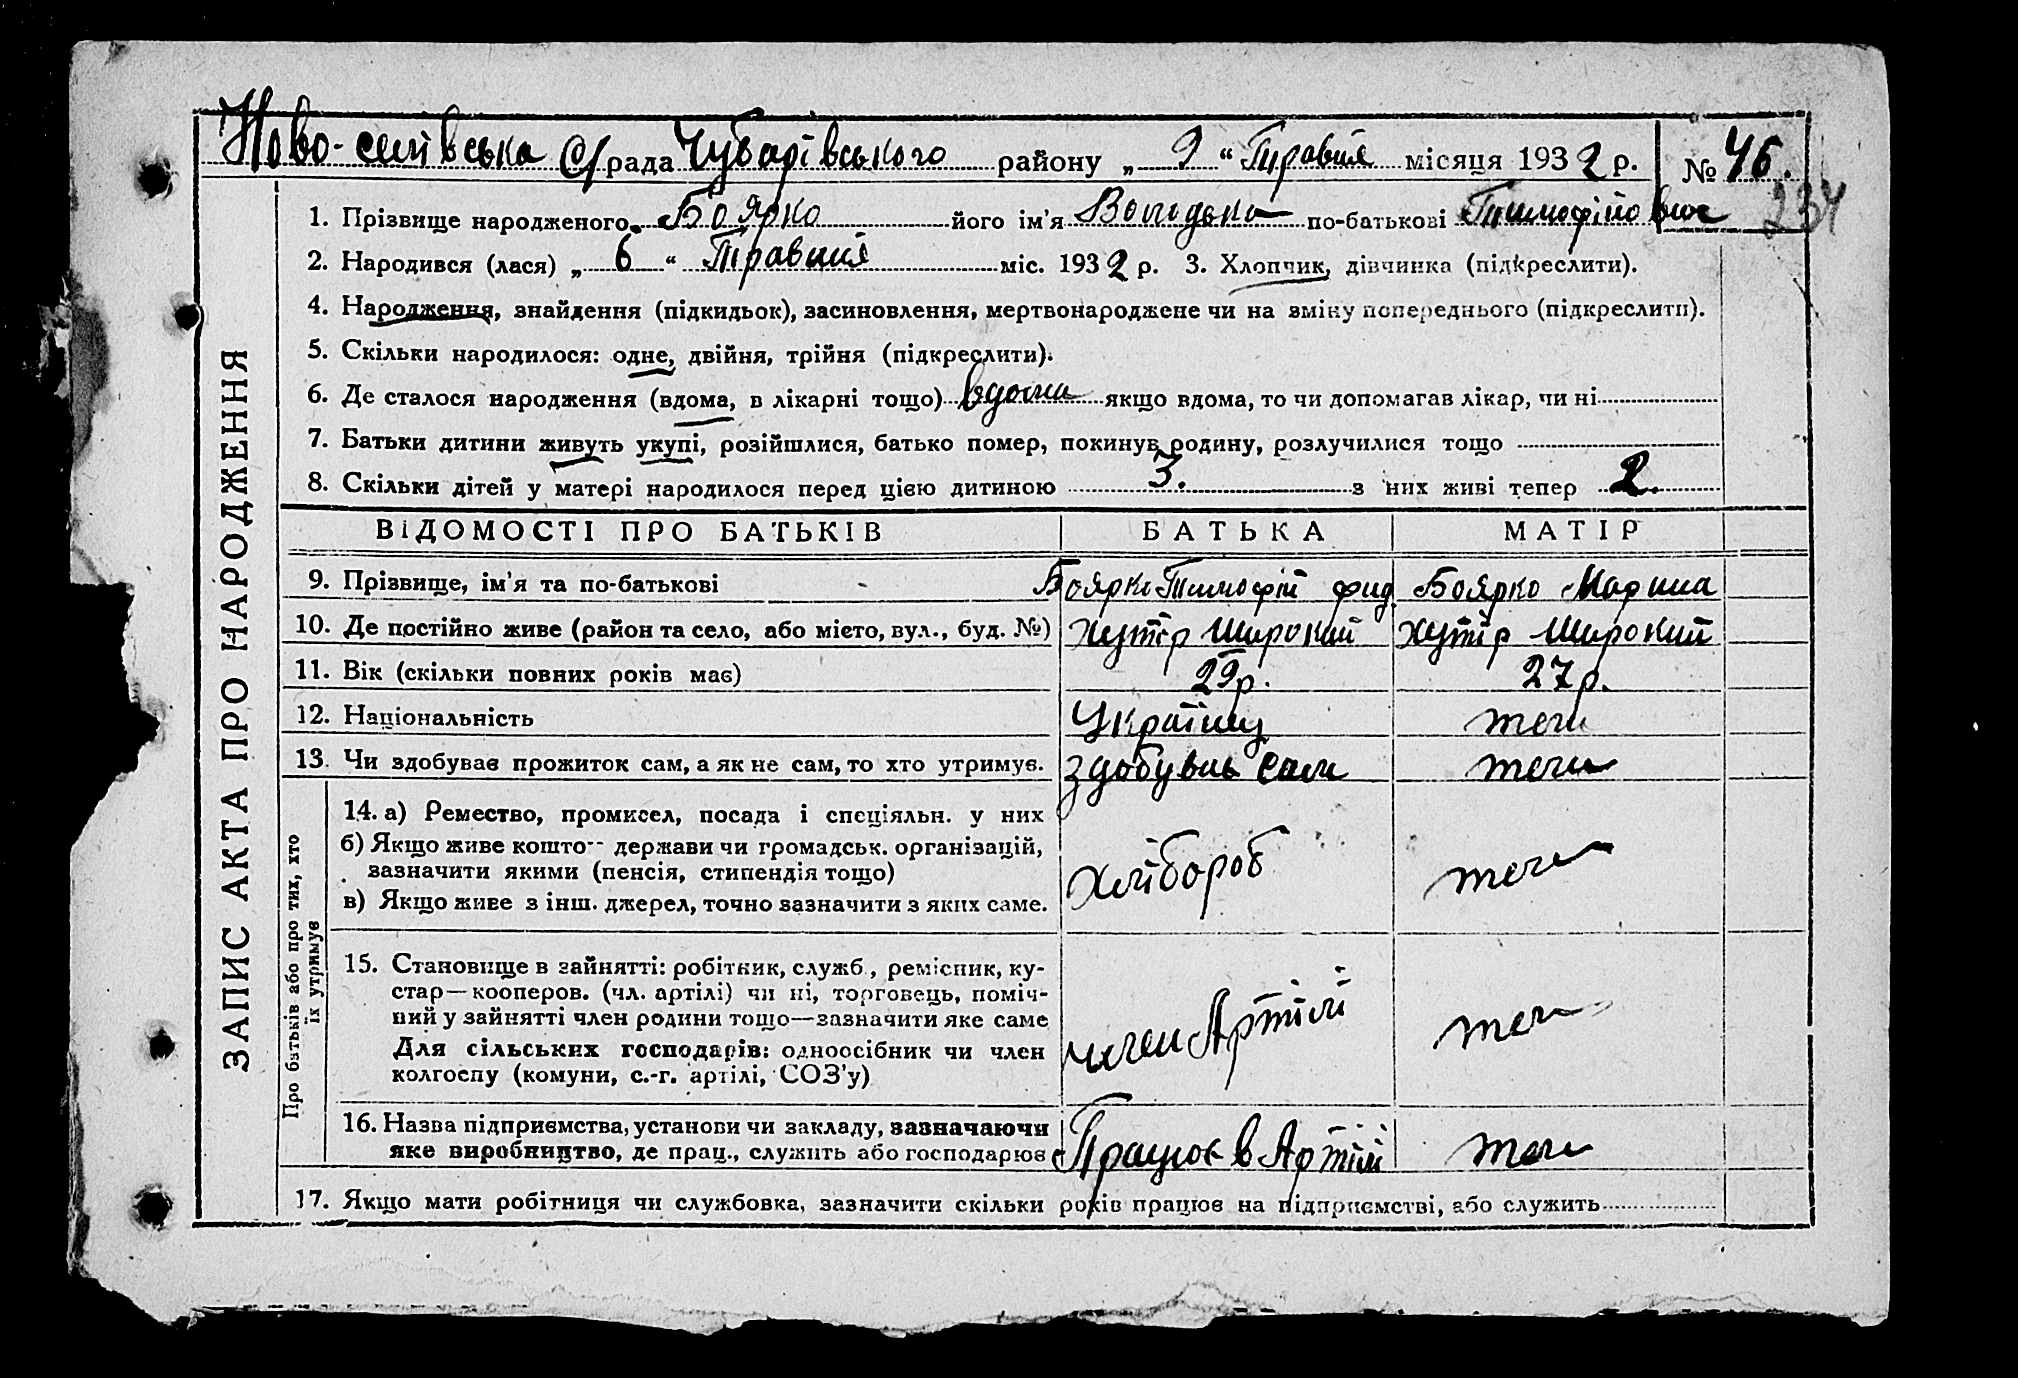 Ново-селівська С/рада Чубарівського району „ 9 “ Травня місяця 1932 р. № 46.
234
1. Прізвище народженого Боярко його ім’я Володька по-батькові Тимофійович
2. Народився (лася) „ 6 “ Травня міс. 1932 р. 3. Хлопчик, дівчинка (підкреслити).
4. Народження, знайдення (підкидьок), засиновлення, мертвонароджене чи на зміну попереднього (підкреслити).
5. Скільки народилося: одне, двійня, трійня (підкреслити).
6. Де сталося народження (вдома, в лікарні тощо) вдома якщо вдома, то чи допомагав лікар, чи ні
7. Батьки дитини живуть укупі, розійшлися, батько помер, покинув родину, розлучилися тощо
8. Скільки дітей у матері народилося перед цією дитиною 3. з них живі тепер 2.
ЗАПИС АКТА ПРО НАРОДЖЕННЯ
ВІДОМОСТІ ПРО БАТЬКІВ БАТЬКА МАТІР
9. Прізвище, ім’я та по-батькові Боярко Тимофій Фид. Боярко Марина
10. Де постійно живе (район та село, або місто, вул., буд. №) Хутір Широкий Хутір Широкий
11. Вік (скільки повних років має) 29 р. 27 р.
12. Національність Українц теж
13. Чи здобуває прожиток сам, а як не сам, то хто утримує. здобував сам теж
Про батьків або про тих, хто
їх утримує
14. а) Ремество, промисел, посада і спеціяльн. у них
б) Якщо живе кошто-- держави чи громадськ. організацій,
зазначити якими (пенсія, стипендія тощо)
в) Якщо живе з інш. джерел, точно зазначити з яких саме.
Хлібороб теж
15. Становище в зайнятті: робітник, служб., ремісник, ку-
стар—кооперов. (чл. артілі) чи ні, торговець, поміч-
ний у зайнятті член родини тощо—зазначити яке саме
Для сільських господарів: одноосібник чи член
колгоспу (комуни, с.-г. артілі, СОЗ’у)
член Артілі теж
16. Назва підприємства, установи чи закладу, зазначаючи
яке виробництво, де прац., служить або господарює
Працює в Артілі теж
17. Якщо мати робітниця чи службовка, зазначити скільки років працює на підприємстві, або служить